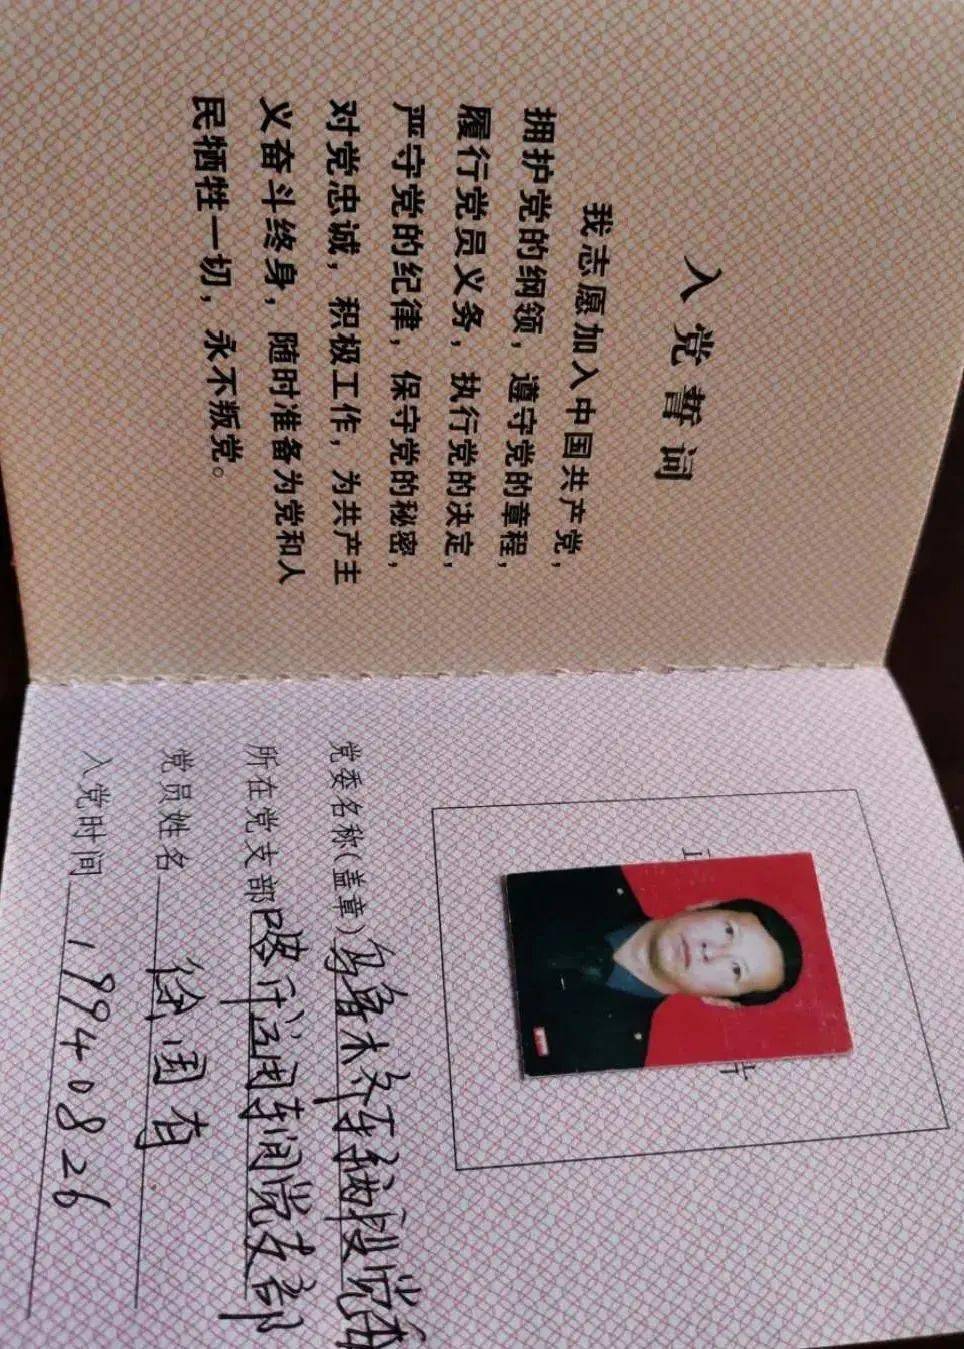 入党誓词
我志愿加入中国共产党，
拥护党的纲领，遵守党的章程，
履行党员义务，执行党的决定，
严守党的纪律，保守党的秘密，
对党忠诚，积极工作，为共产主
义奋斗终身，随时准备为党和人
民牺牲一切，永不叛党。
党委名称(盖章)乌鲁木齐车辆段党委
所在党支部 运用车间党支部
党员姓名 徐国有
入党时间 19940826